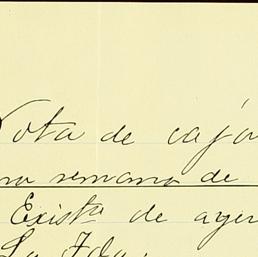 Nota de cajón
semana de
Exista de ayer
La Yda.